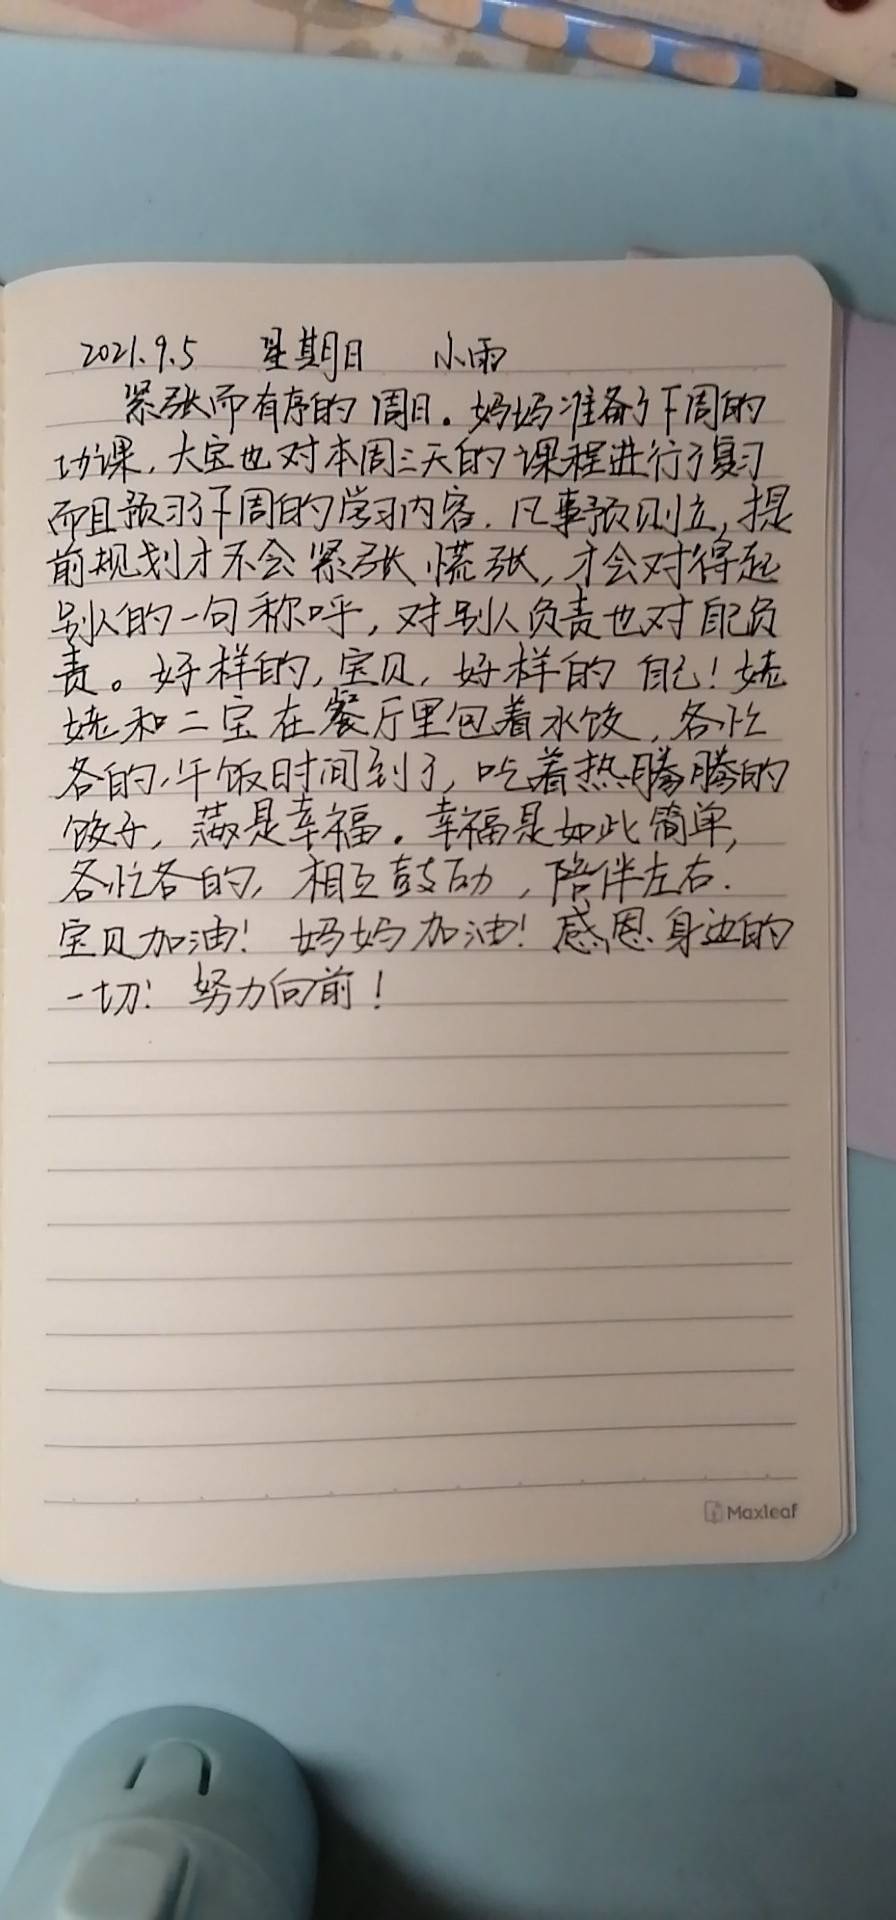 2021.9.5 星期日 小雨
紧张而有序的周日。妈妈准备了下周的
功课,大宝也对本周三天的课程进行了复习
而且预习了下周的学习内容.凡事预则立,提
前规划才不会紧张慌张,才会对得起
别人的一句称呼,对别人负责也对自己负
责。好样的,宝贝,好样的自己!姥
姥和二宝在餐厅里包着水饺,各忙
各的,午饭时间到了,吃着热腾腾的
饺子,满是幸福。幸福是如此简单,
各忙各的,相互鼓励,陪伴左右.
宝贝加油!妈妈加油!感恩身边的
一切!努力向前!
Maxleaf